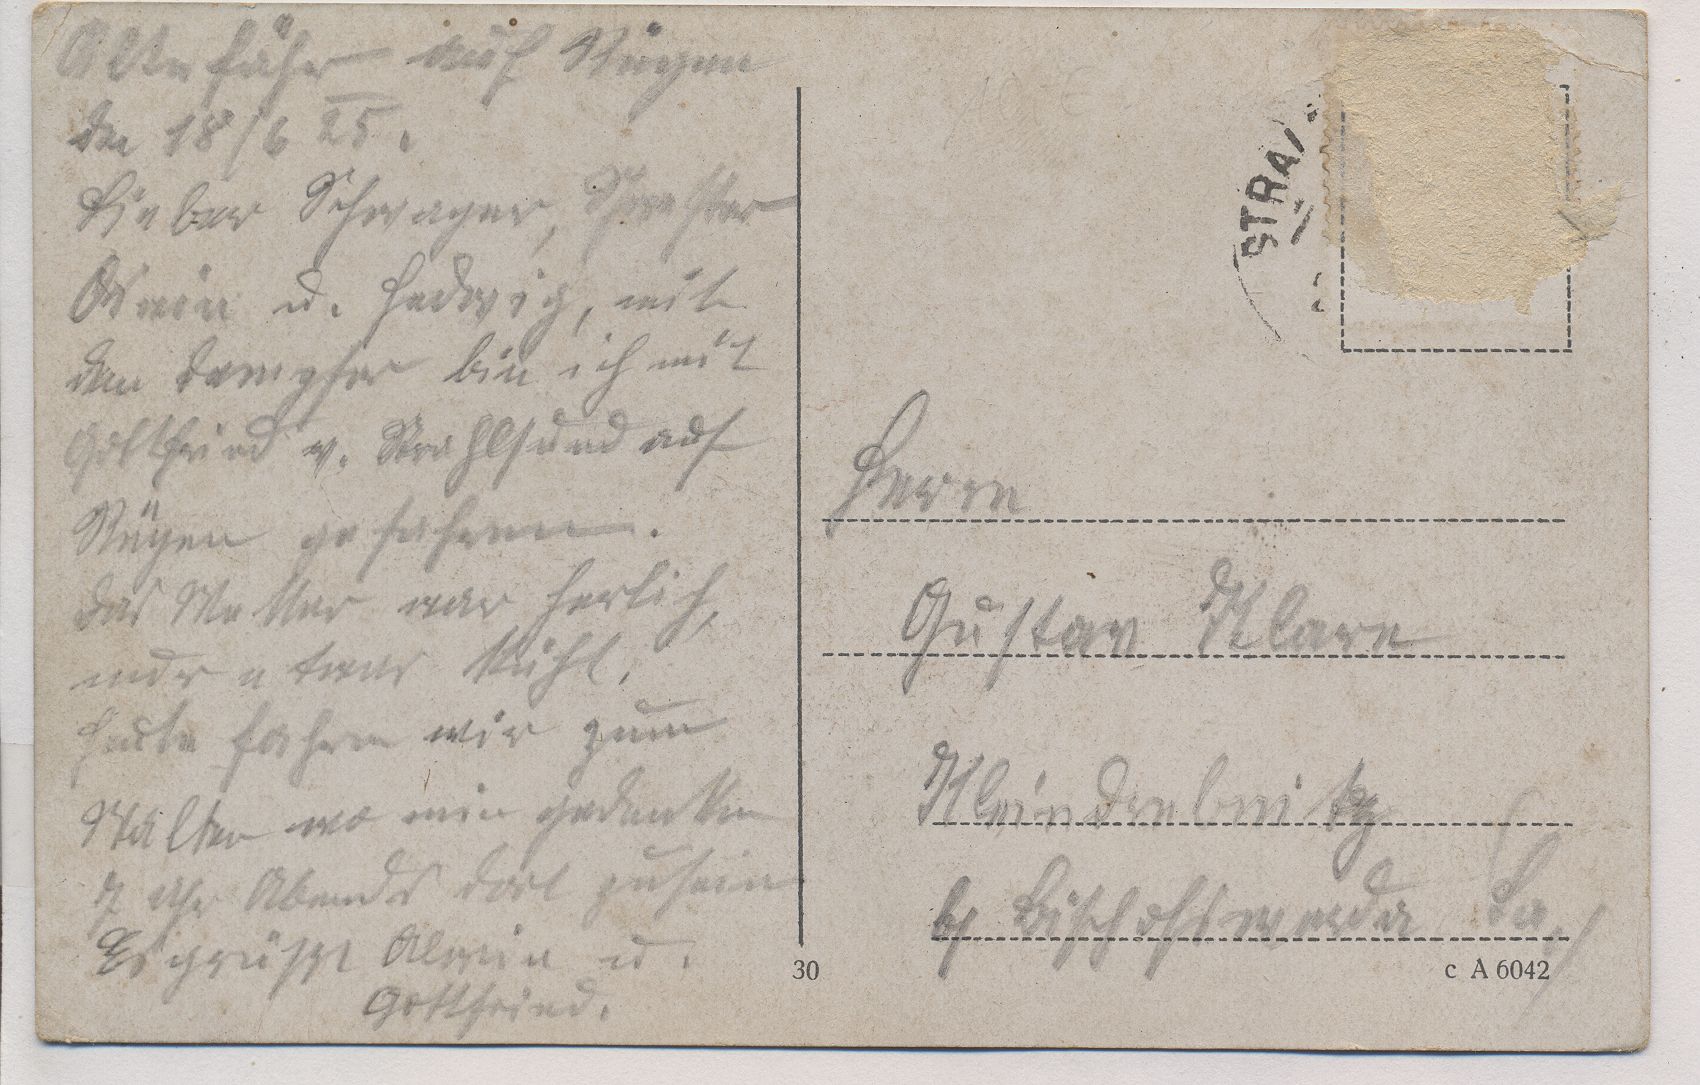 Altefähr auf Rügen
den 18/6 25.
Lieber Schwager, Schwester
u. Hedwig, mit
den Dampfer bin ich mit
Gottfried v. Strahlsund auf
Rügen gefahren.
das Wetter war herlich,
nur etwas kühl,
heute fahren wir zum
wo wir gedenken
7 Uhr Abends dort zusein
Es grüsst Alwin u.
Gottfried.
STRA
Herrn
Gustav Klare
Kleindrebnitz
b/ Bischofswerda Sa./
30
c A 6042